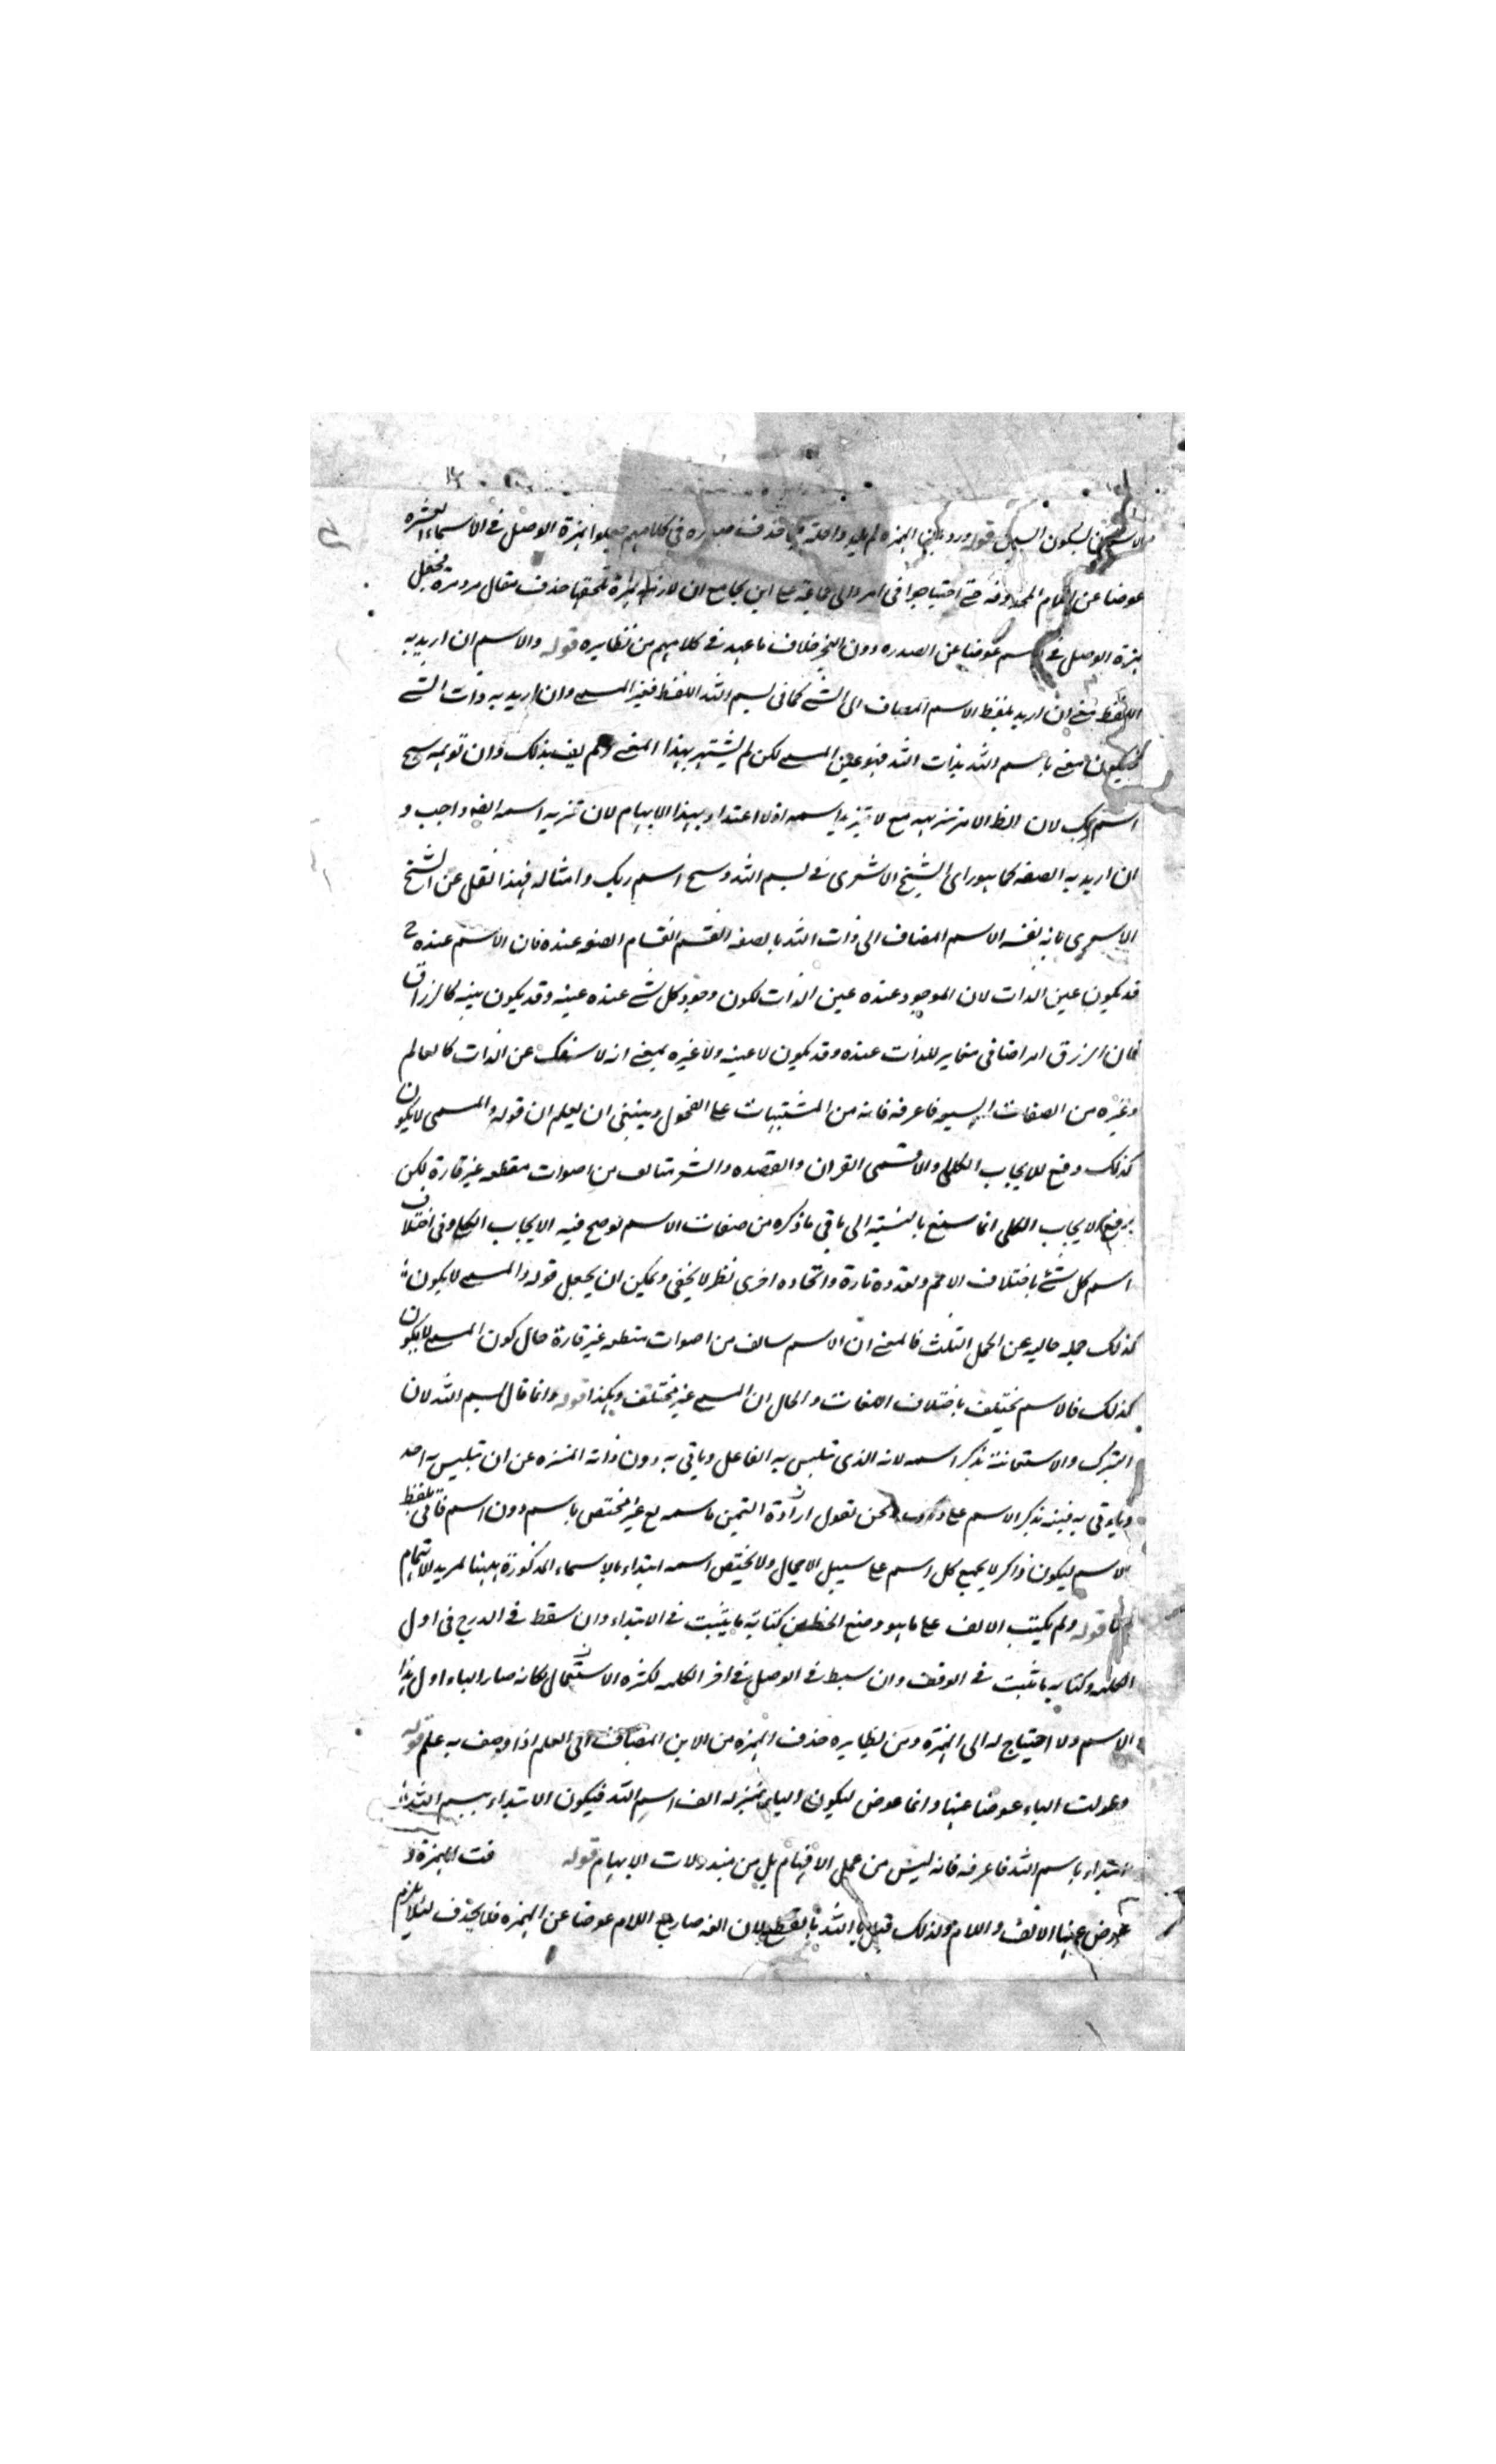 بسكون السين قوله ورد بان الهمزة لم داخلة حذف صدره في كلامهم همزة الوصل في الاسماء العشرة
عوضا عن المحذوفة حتى احتياجوا في ابن ان حذف مقال فجعل
همزة الوصل في عوضا عن الصدر دون العجز خلاف ما عهد في كلامهم من نظايره قوله والاسم ان اريد به
اللفظ يعني ان اريد بلفظ الاسم المضاف الى الشئ كما في بسم الله اللفظ فغير المسمى وان اريد به ذات الشئ
فيكون معنى باسم الله بذات الله فهو عين المسمى لكن لم يشتهر بهذا المعنى ولم بذلك وان توهمه سبح
اسم ربك لان الامر مع لا اسمه اذ لا اعتداد بهذا الايهام لان تنزيه اسمه ايضا واجب و
ان اريد به الصفة كما هو راى الشيخ الاشعرى في بسم الله وسبح اسم ربك وامثاله فهذا نقل عن الشيخ
الاشعرى بانه الاسم المضاف الى ذات الله بالصفة انقسم انقسام الصفة عنده فان الاسم عنده ح
قد يكون عين الذات لان الموجود عنده عين الذات لكون وجود كل شئ عنده عينه وقد يكون كالرزاق
فان الرزق امر اضافى مغاير للذات عنده وقد يكون لا عينه ولا غيره بمعنى انه لا ينفك عن الذات كالعالم
وغيره من الصفات فاعرفه فانه من المشتبهات على الفحول وينبغى ان يعلم ان قوله والمسمى لا يكون
كذلك رفع للايجاب الكلى والا فمسمى القران والقصيدة والشعر يتالف من اصوات مقطعة غير قارة لكن
رفع الايجاب الكلى انما يصح بالنسبة الى باقى ما ذكره من صفات الاسم لو صح فيه الايجاب الكلى وفى اختلاف
اسم كل شئ باختلاف الامم وتعدده تارة واتحاده اخرى نظر لا يخفى ويمكن ان يجعل قوله والمسمى لا يكون
كذلك جملة حالية عن الجمل الثلث فالمعنى ان الاسم يتالف من اصوات مقطعة غير قارة حال كون المسمى لا يكون
كذلك فالاسم يختلف باختلاف اللغات والحال ان المسمى غير مختلف وهكذا قوله وانما قال بسم الله لان
التبرك والاستعانة بذكر اسمه لانه الذى تلبس به الفاعل وياتى به دون ذاته المنزه عن ان تلبس به احد
ويؤتى به ففيه بذكر الاسم على ونحن نقول ارادة التيمن باسمه مع غير مختص باسم دون اسم فاتى بلفظ
الاسم ليكون ذاكرا لجميع كل اسم على سبيل الاجمال ولا يختص اسمه ابتداء بالاسماء المذكورة ههنا لمزيد الاهتمام
قوله ولم يكتب الالف على ما هو وضع الخط من كتابة ما يثبت في الابتداء وان سقط في الدرج في اول
الكلمة وكتابة ما ثبت في الوقف وان سقط في الوصل في اخر الكلمة لكثرة الاستعمال لكانه صار الباء اول هذا
الاسم ولا احتياج له الى الهمزة ومن نظايره حذف الهمزة من الابن المضاف الى العلم اذا وصف به علم قوله
وطولت الباء عوضا عنها وانما عوض ليكون الباء بمنزلة الف اسم الله فيكون الابتداء ببسم الله
ابتداء باسم الله فاعرفه فانه ليس من عمل الافهام بل من مبذولات الايهام قوله فت الهمزة و
عوض عنها الالف واللام ولذلك قيل يا الله بالقطع لان الفه صار مع اللام عوضا عن الهمزة فلا يحذف لئلا يلزم